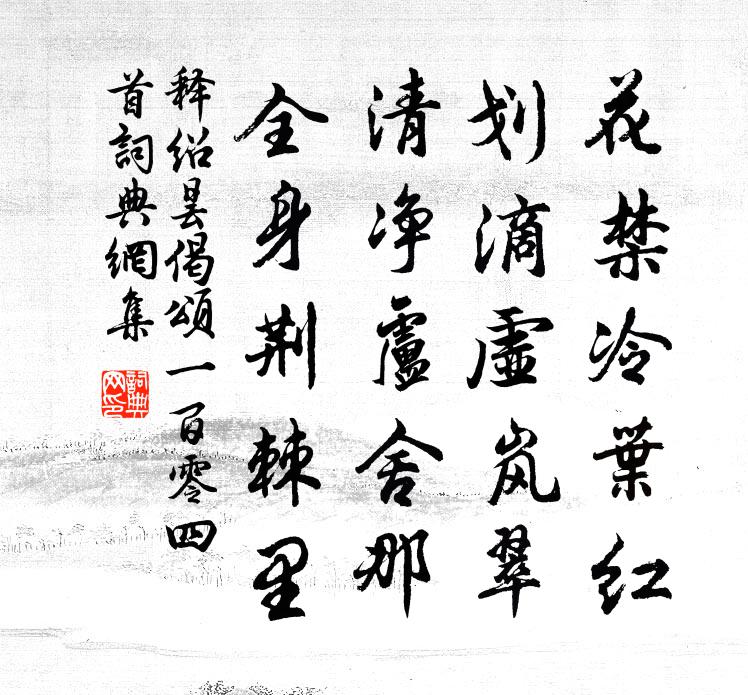 花禁冷葉红
划滴虚岚翠
清净盧舍那
全身荆棘里
释绍昙偈頌一百零四
首詞典網集
詞典
网印